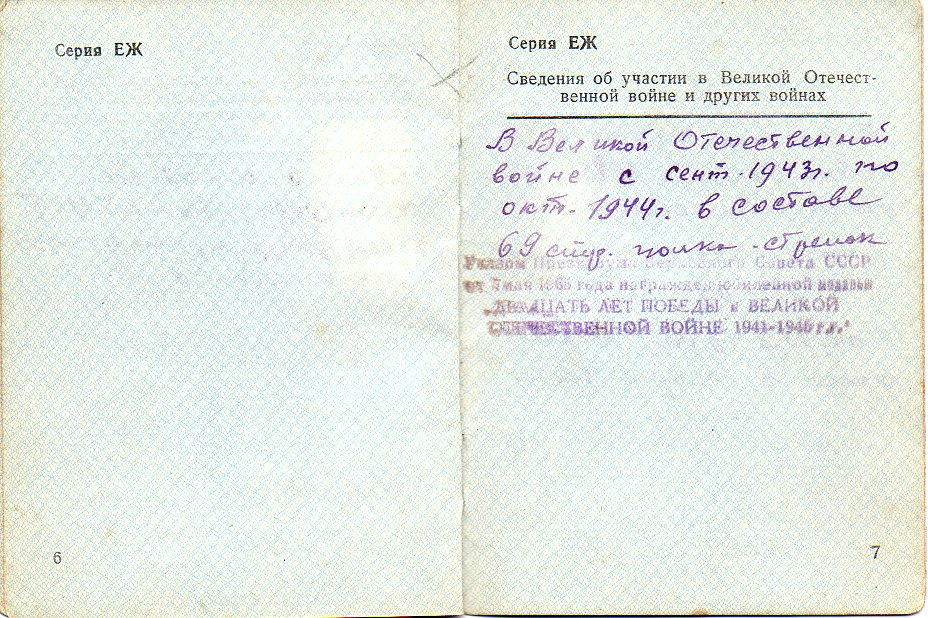 Серия ЕЖ
6
Серия ЕЖ
Сведения об участии в Великой Отечест-
венной войне и других войнах
В Великой Отечественной
войне с сент. 1943г. по
окт. 1944г. в составе
69 стр. полка - стрелок
Указом Президиума Верховного Совета СССР
от 7 мая 1965 года награжден юбилейной медалью
„ДВАДЦАТЬ ЛЕТ ПОБЕДЫ в ВЕЛИКОЙ
ОТЕЧЕСТВЕННОЙ ВОЙНЕ 1941-1945 г.г.“
7